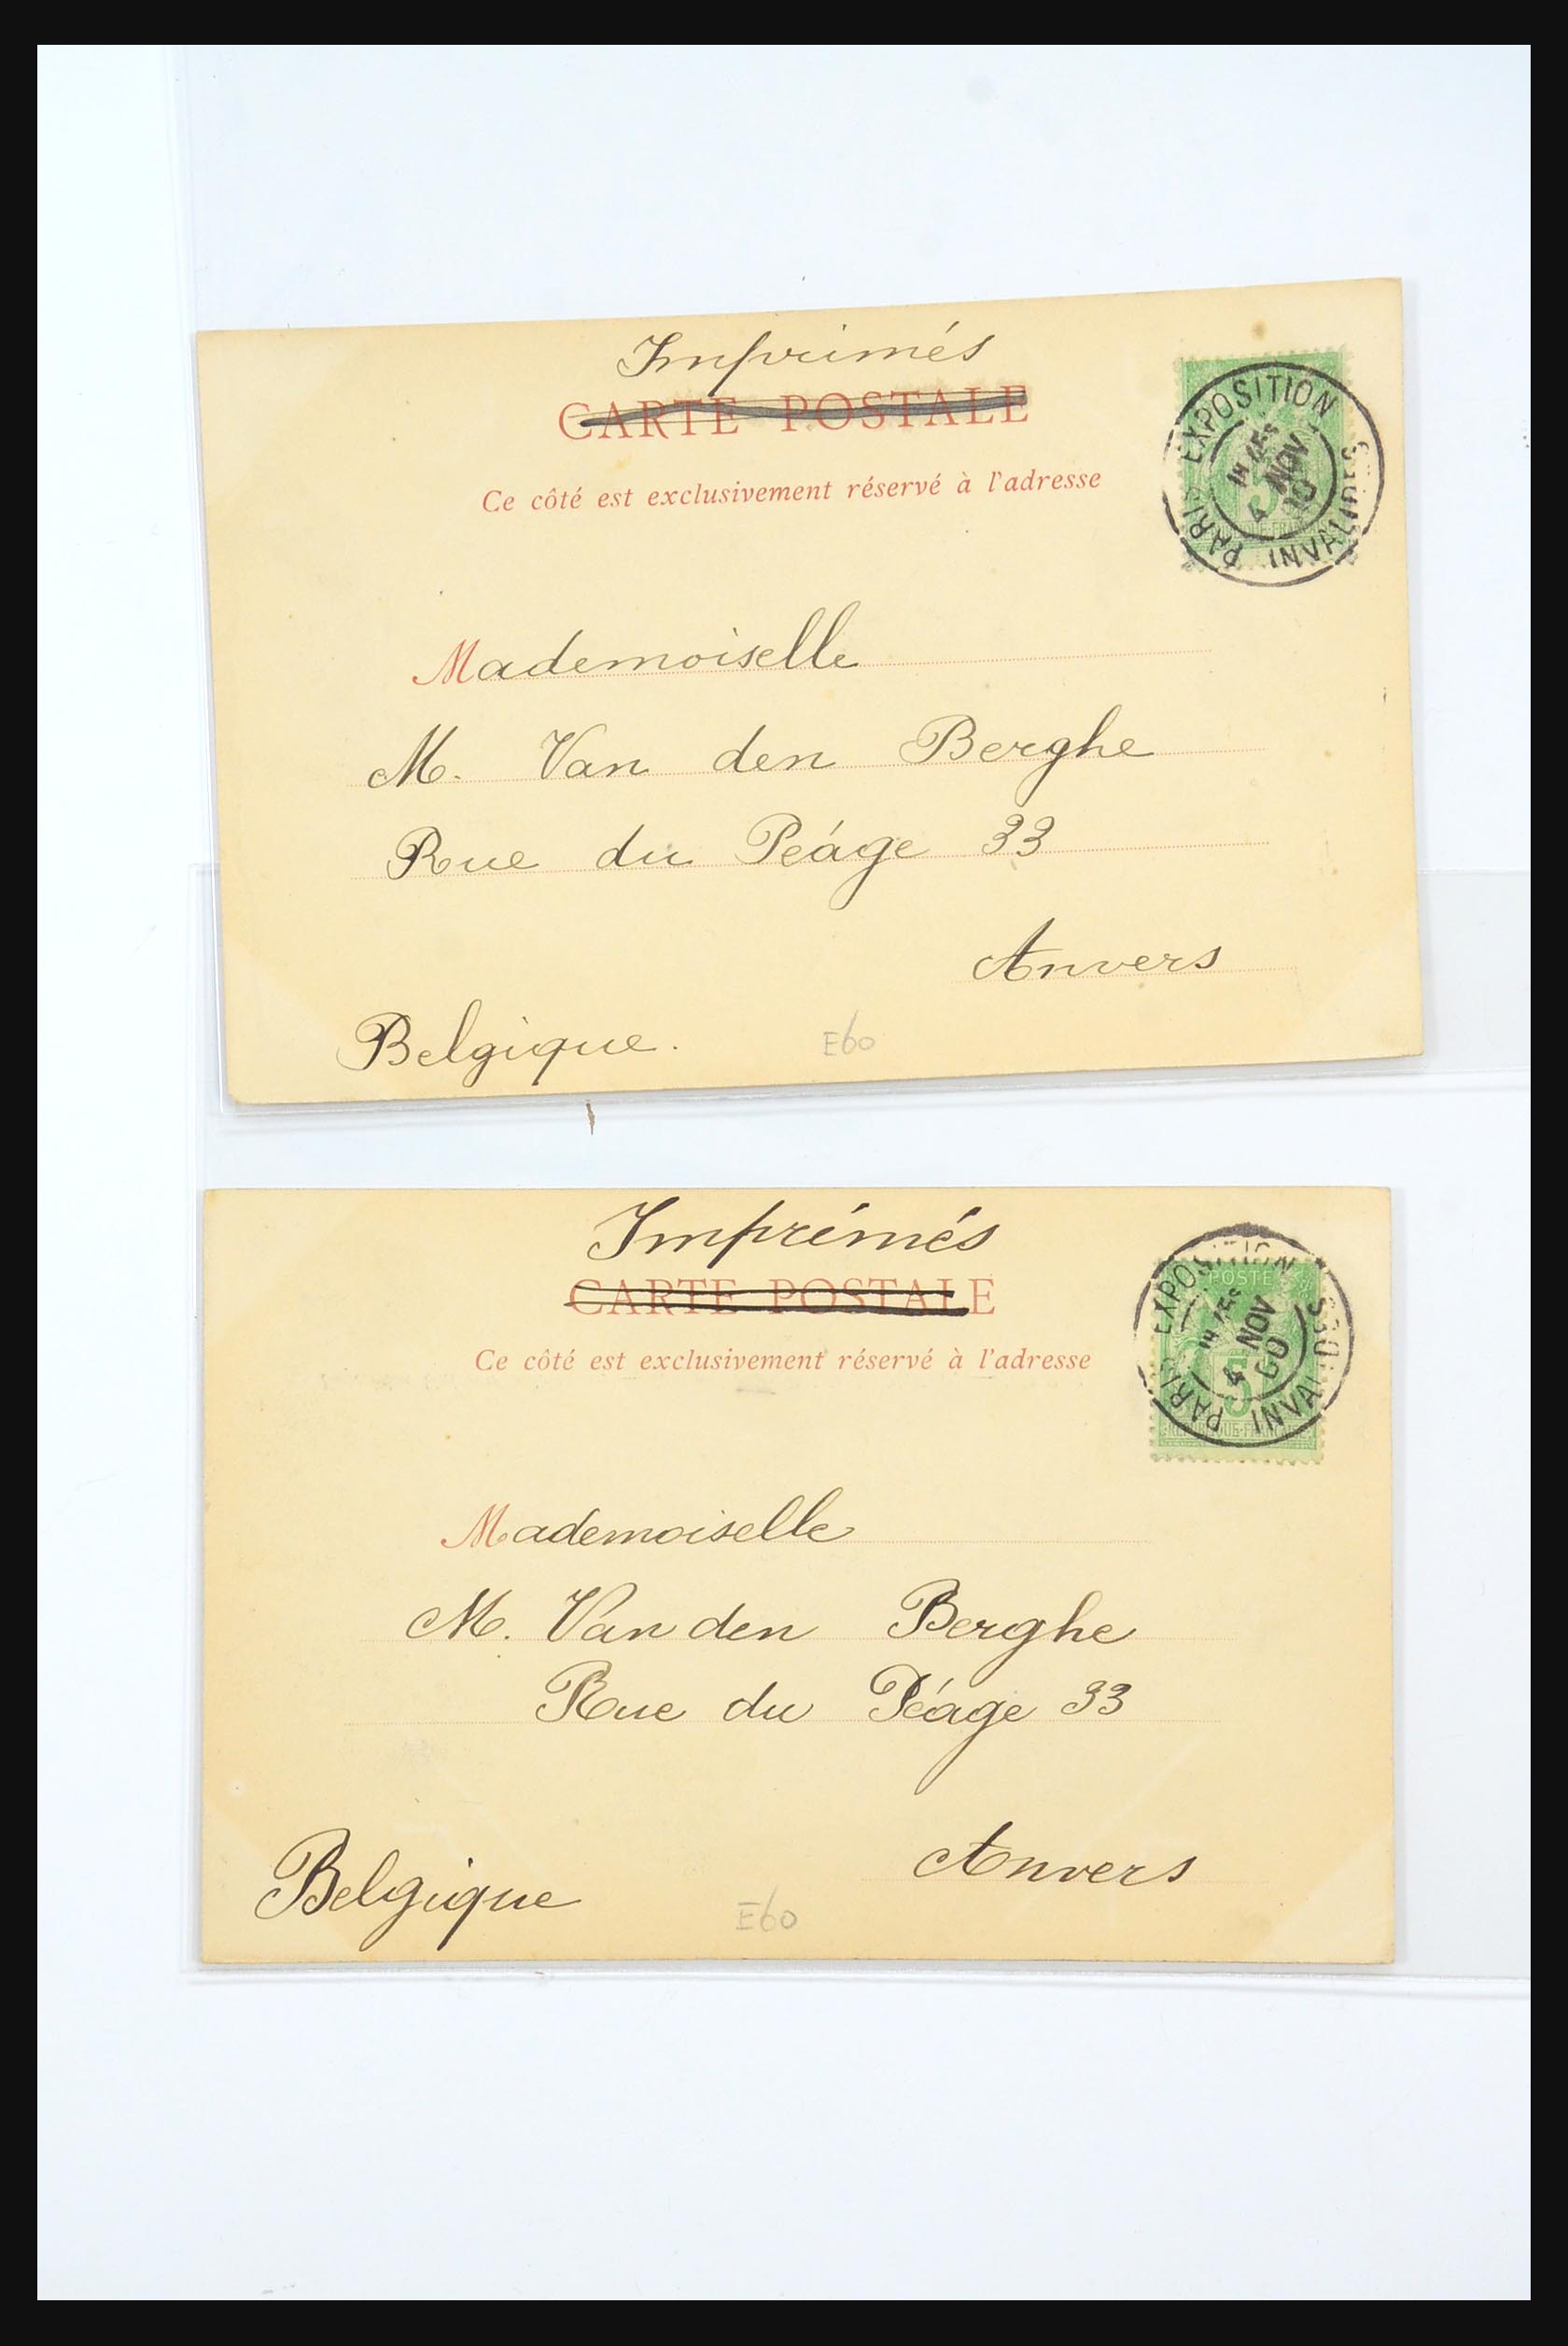 Imprimés
CARTE POSTALE
Ce côté est exclusivement réservé à l'adresse
PARIS EXPOSITION INVALIDES
4 NOV
5
Mademoiselle
M. Van den Berghe
Rue du Peáge 33
Anvers
Belgique.
E60
Imprémés
CARTE POSTALE
Ce côté est exclusivement réservé à l'adresse
PARIS EXPOSITION INVALIDES
4 NOV 00
POSTE
5
REPUBLIQUE-FRANÇAISE
Mademoiselle
M. Van den Berghe
Rue du Péage 33
Anvers
Belgique
E60